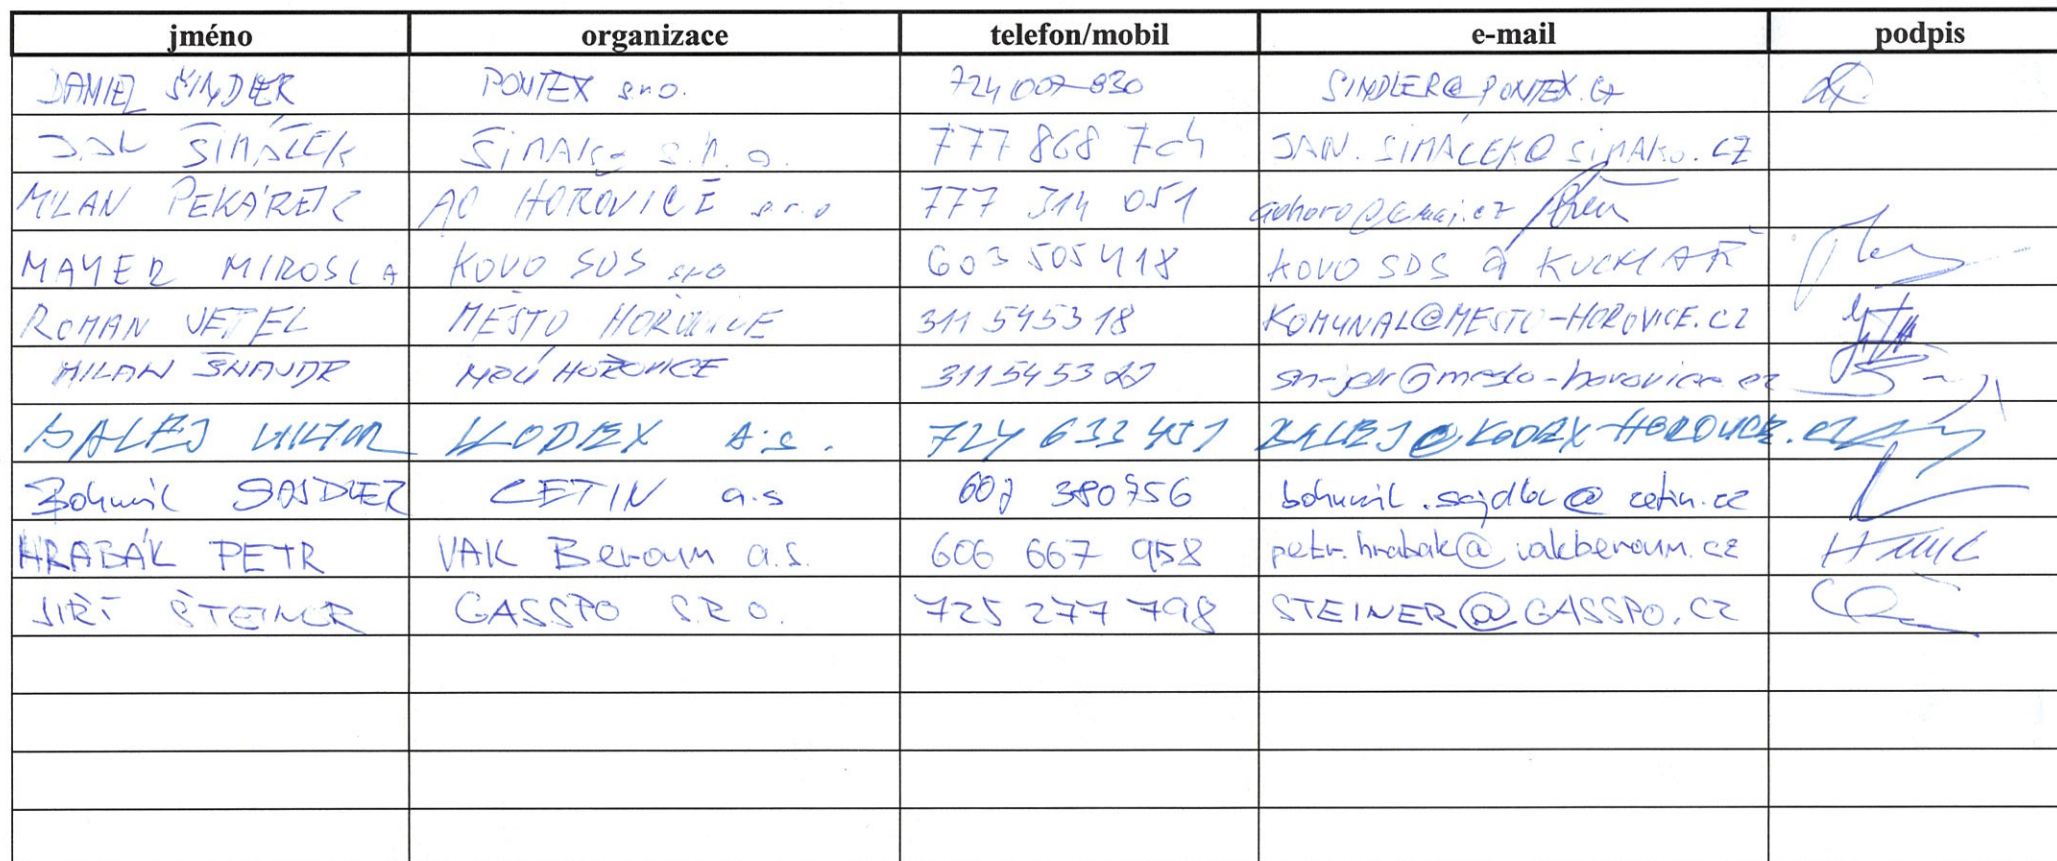 jméno organizace telefon/mobil e-mail podpis
DANIEL ŠINDLER PONTEX s.r.o. 724 007 830 SINDLER@PONTEX.CZ
JAN ŠIMÁČEK ŠIMAKO s.r.o. 777 868 704 JAN.SIMACEK@SIMAKO.CZ
MILAN PEKÁREK AC HOŘOVICE s.r.o 777 314 051
MAYER MIROSLA KOVO SDS sro 603 505 418 KOVO SDS @
ROMAN VETEL MĚSTO HOŘOVICE 311 545318 KOMUNAL@MESTO-HOROVICE.CZ
MILAN ŠNAJDR HOŘOVICE
VIKTOR KODEX A.S.
Bohumil SAJDLER CETIN a.s 607 380756 bohumil.sajdler@cetin.cz
HRABÁK PETR VAK Beroun a.s. 606 667 958 petr.hrabak@vakberoun.cz
JIŘÍ ŠTEINER GASSPO S.R.O. 725 277 798 STEINER@GASSPO.CZ